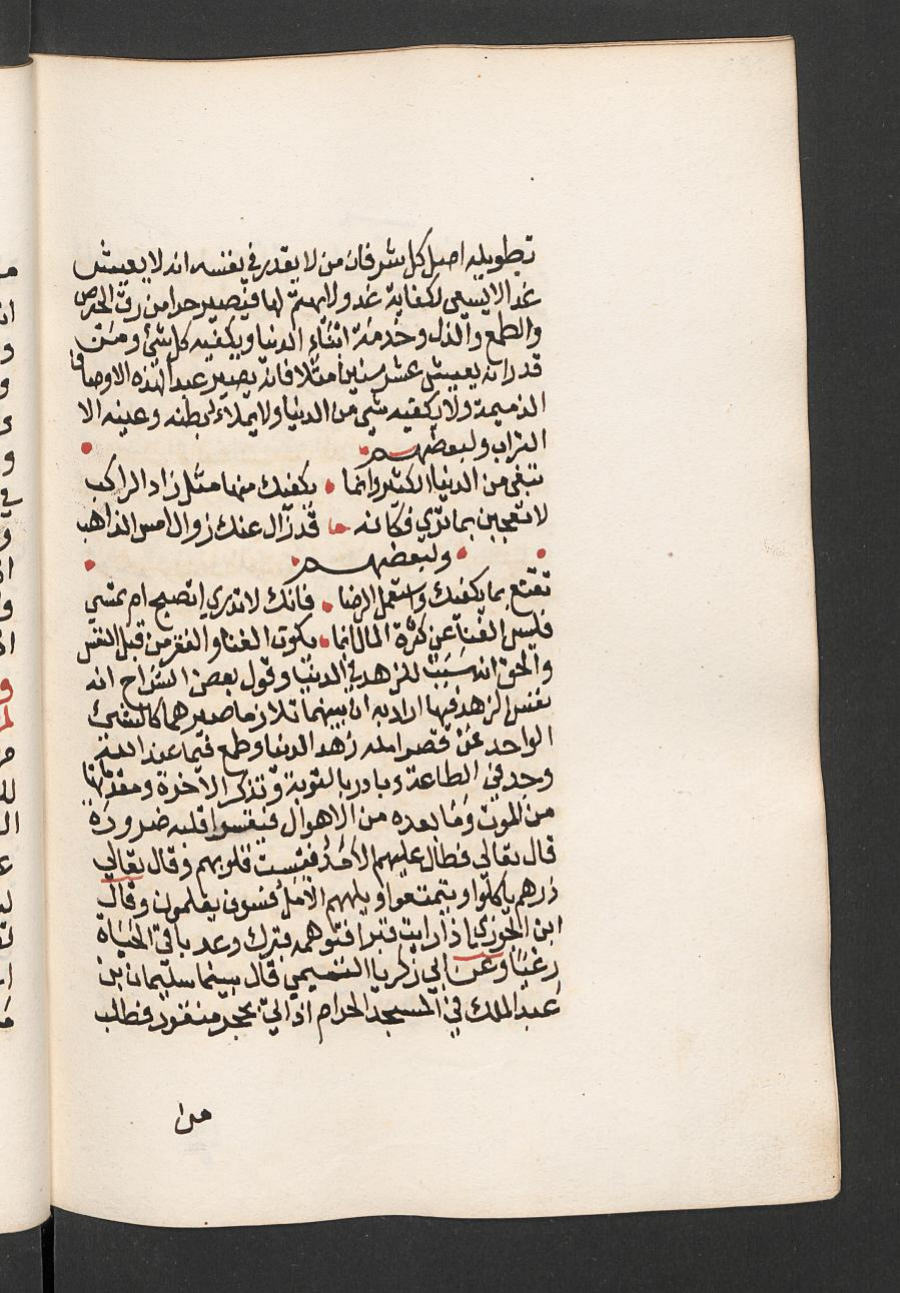 تطويله اصل كل شر فان من لا يقدر في نفسه انه لا يعيش
غد الا يسعى لكفاية غد ولا يهتم لها فيصير حرا من رق الحرص
والطمع والذل وخدمة ابناء الدنيا ويكفيه كل شئ ومن
قدر انه يعيش عشر سنين مثلا فانه يصير عبد الهذه الاوصاف
الذميمة ولا يكفيه شي من الدنيا ولا يملاء بطنه وعينه الا
التراب ولبعضهم
تبغي من الدنيا الكثير وانما • يكفيك منها مثل زاد الراكب
لا تعجبن بما تري فكانه ها قد زال عنك زوال امس الذاهب
• ولبعضهم •
تقنع بما يكفيك واستعمل الرضا • فانك لا تدري اتصبح ام تمسي
فليس الغنا عن كثرة المال انما • يكون الغنا والفقر من قبل النفس
والحق انه سبب للزهد في الدنيا وقول بعض الشراح انه
نفس الزهد فيها اراد به ان بينهما تلازما صيرهما كالشئ
الواحد من قصر امله زهد الدنيا وطمع فيما عند الله
وجد في الطاعة وبادر بالتوبة وتذكر الآخرة ومقدماتها
من الموت وما بعده من الاهوال فيقسوا قلبه ضرورة
قال تعالي فطال عليهم الأمد فقست قلوبهم وقال تعالي
ذرهم ياكلوا ويتمتعوا ويلههم الأمل فسوف يعلمون وقال
ابن الجوزي اذا رايت قبرا فتوهمه قبرك وعد باقي الحياه
رغبا وعن ابي زكريا التميمي قال بينما سليمان بن
عبد الملك في المسجد الحرام اذ اتي بحجر منقور فطلب